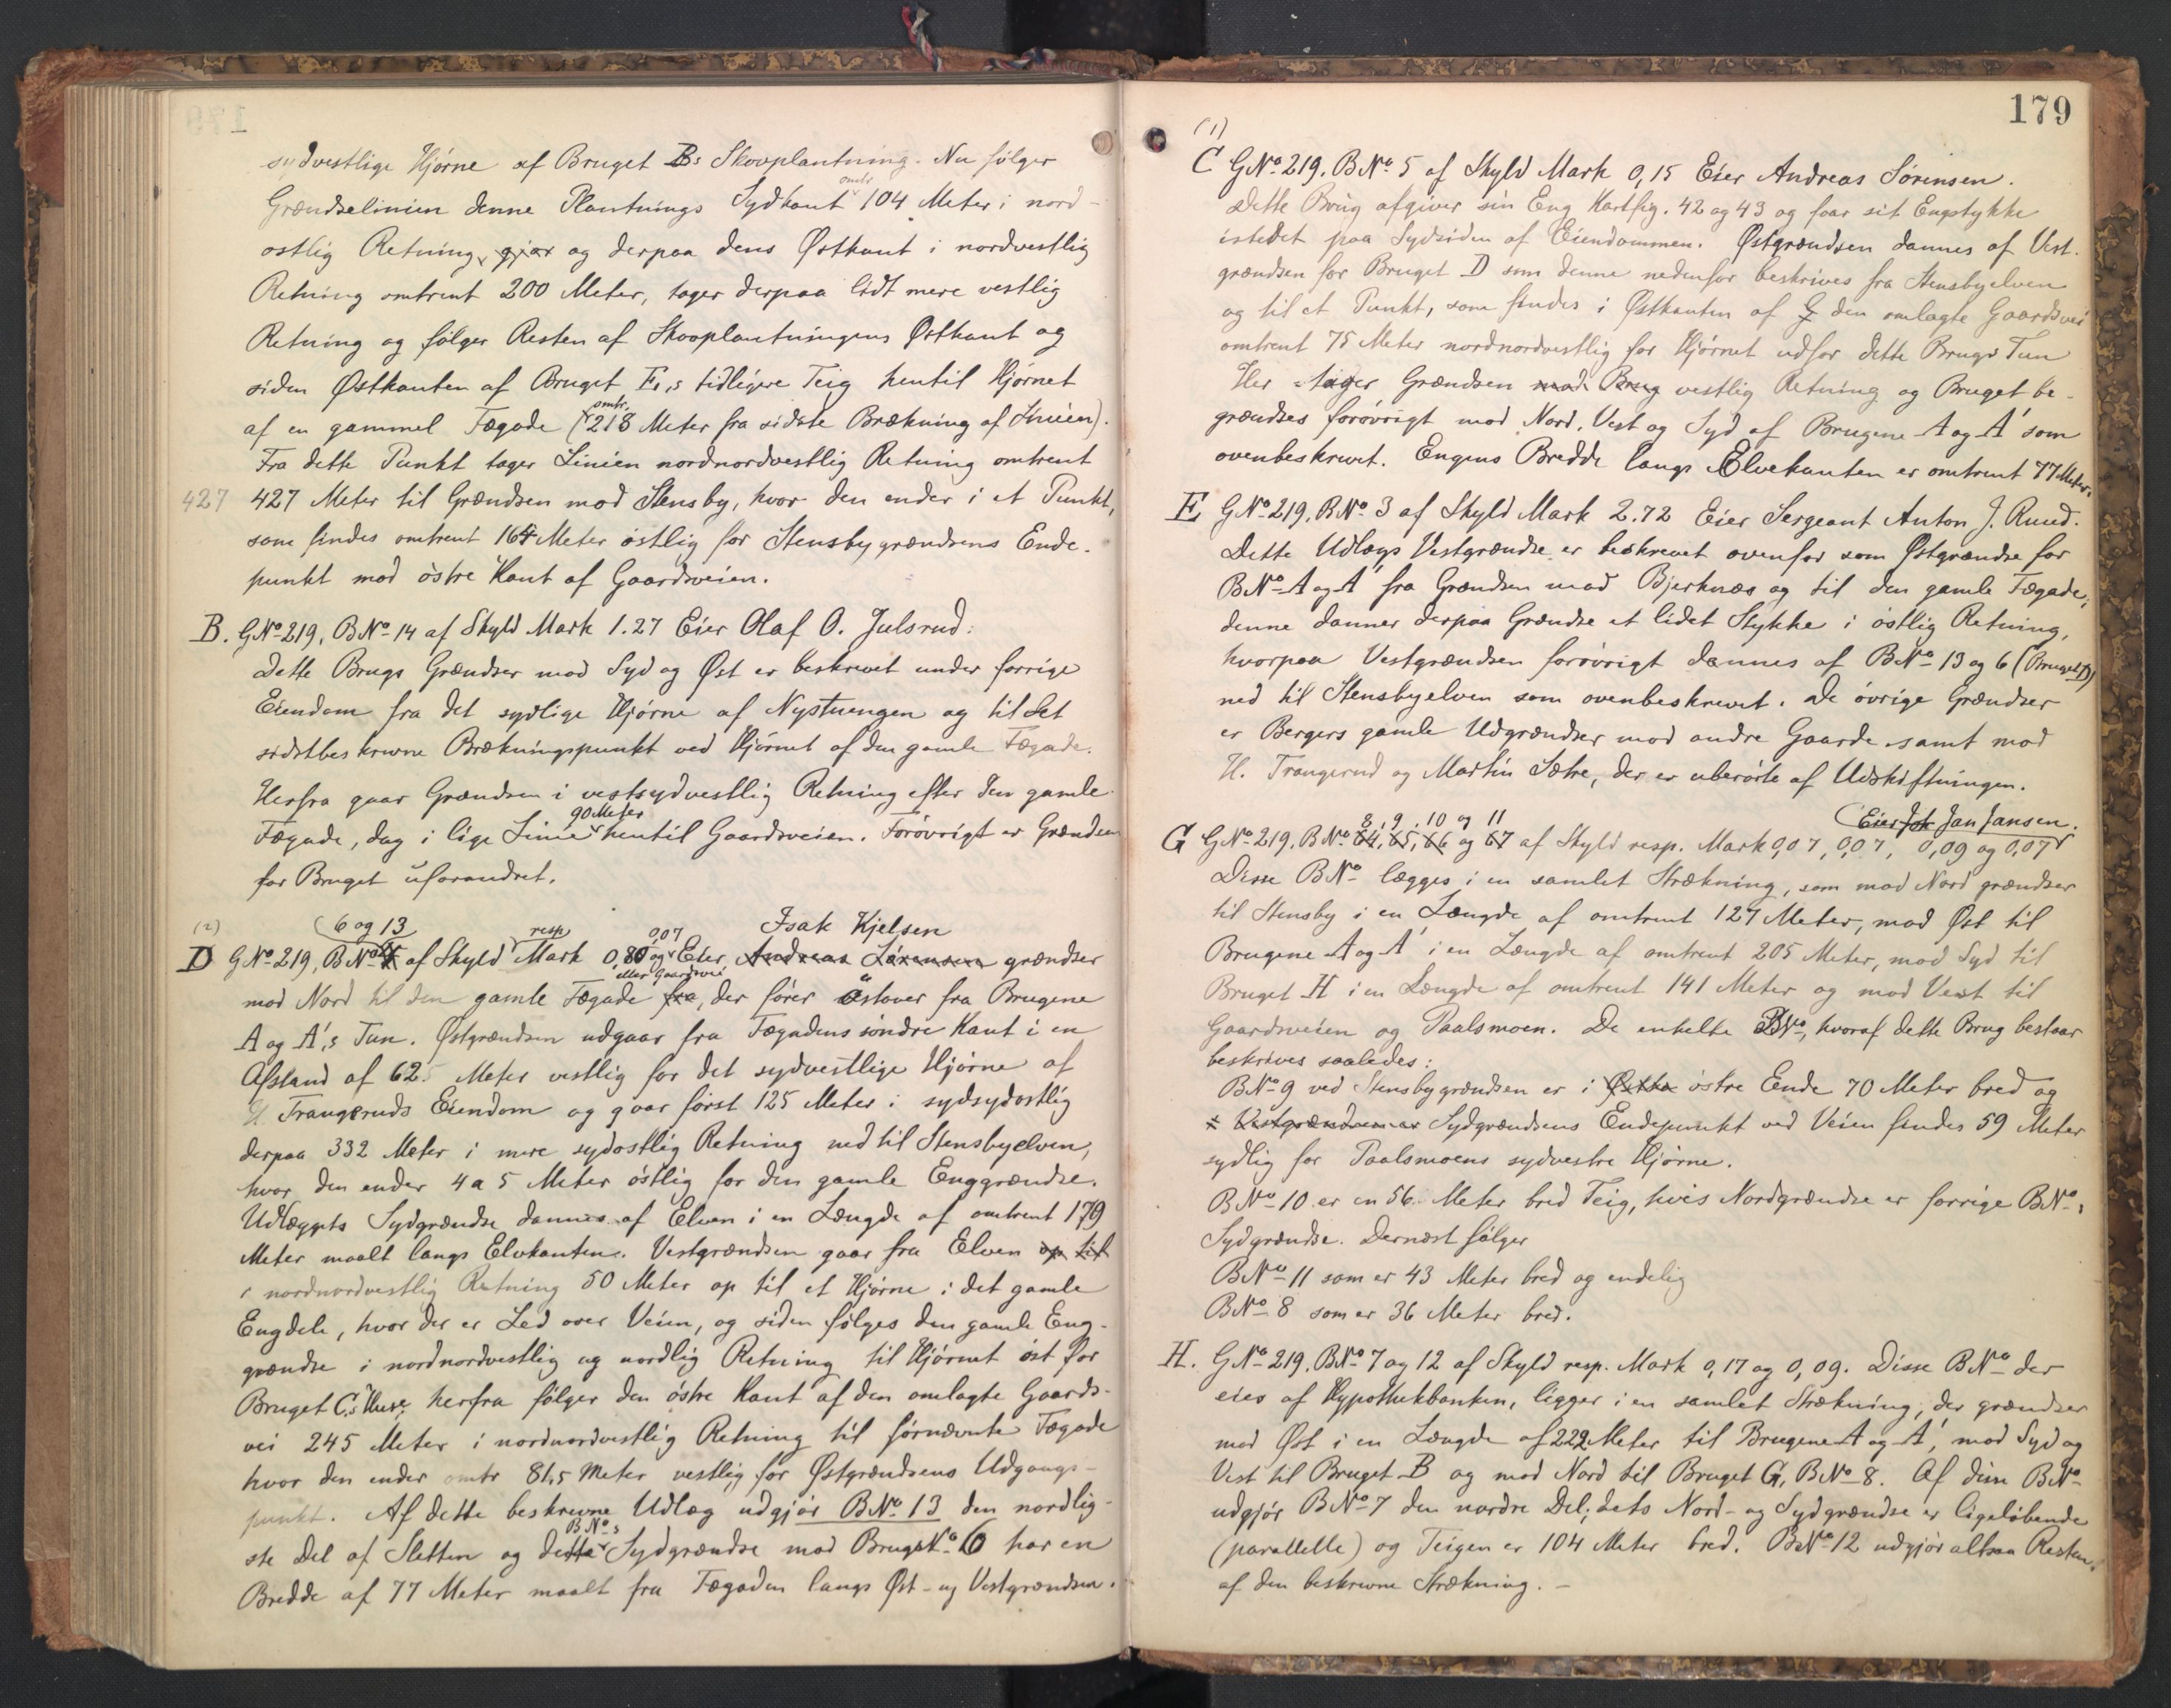 sydvestlige Hjørne af Bruget Bs Skovplantning. Nu følger
Grændselinien denne Plantnings Sydkant omtr 104 Meter i nord-
ostlig Retning, gjør og derpaa dens Østkant i nordvestlig
Retning omtrent 200 Meter, tager derpaa lidt mere vestlig
Retning og følger Resten af Skovplantningens Østkant og
siden Østkanten af Bruget E.,s tidligere Teig hentil Hjørnet
af en gammel Fægade (omtr. 218 Meter fra sidste Brækning af Linien).
Fra dette Punkt tager Linien nordnordvestlig Retning omtrent
427 427 Meter til Grændsen mod Stensby, hvor den ender i et Punkt,
som findes omtrent 164 Meter østlig for Stensbygrændsens Ende-
punkt mod østre Kant af Gaardsveien.
B. GNo 219, BNo 14 af Skyld Mark 1.27 Eier Olaf O. Julsrud:
Dette Brugs Grændser mod Syd og Øst er beskrevet under forrige
Eiendom fra det sydlige Hjørne af Nystuengen og til det
sidstbeskrevne Brækningspunkt ved Hjørnet af den gamle Fægade.
Herfra gaar Grændsen i vestsydvestlig Retning efter den gamle
Fægade, dog i lige Linie 90 Meter hentil Gaardsveien. Forøvrigt er Grændsen
for Bruget uforandret.
(2) 6 og 13 resp 0,07 Isak Kjelsen
D GNo 219, BNo af Skyld Mark 0,80 og Eier Andreas Sørensen grændser
mod Nord til den gamle Fægade eller Gaardsvei fra, der fører østover fra Brugene
A og A',s Tun. Østgrændsen udgaar fra Fægadens søndre Kant i en
Afstand af 62,5 Meter vestlig for det sydvestlige Hjørne af
H Trangeruds Eiendom og gaar først 125 Meter i sydsydostlig
derpaa 332 Meter i mere sydostlig Retning ned til Stensbyelven,
hvor den ender 4 a 5 Meter østlig for den gamle Enggrændse.
Udlæggets Sydgrændse dannes af Elven i en Længde af omtrent 179
Meter maalt langs Elvekanten. Vestgrændsen gaar fra Elven op til
i nordnordvestlig Retning 50 Meter op til et Hjørne i det gamle
Engdele, hvor der er Led over Veien, og siden følges den gamle Eng-
grændse i nordnordvestlig og nordlig Retning til Hjørnet øst for
Bruget C.s Huse, herfra følger den østre Kant af den omlagte Gaards-
vei 245 Meter i nordnordvestlig Retning til førnævnte Fægade
hvor den ender omtr 81,5 Meter vestlig for Østgrændsens Udgangs-
punkt. Af dette beskrevne Udlæg udgjør BNo 13 den nordlig-
ste Del af Sletten og dette BNo s Sydgrændse mod Brugs No 6 har en
Bredde af 77 Meter maalt fra Fægaden langs Øst- og Vestgrændsen.
179
(1)
C GNo 219. BNo 5 af Skyld Mark 0,15 Eier Andreas Sørensen.
Dette Brug afgiver sin Eng Kartfig. 42 og 43 og faar sit Engstykke
istedet paa Sydsiden af Eiendommen. Østgrændsen dannes af Vest-
grændsen for Bruget D som denne nedenfor beskrives fra Stensbyelven
og til et Punkt, som findes i Østkanten af G den omlagte Gaardsvei
omtrent 75 Meter nordnordvestlig for Hjørnet udfor dette Brugs Tun
Her tager Grændsen mod Brug vestlig Retning og Bruget be-
grændses forøvrigt mod Nord, Vest og Syd af Brugene A og A' som
ovenbeskrevet. Engens Bredde langs Elvekanten er omtrent 77 Meter.
E GNo 219. BNo 3 af Skyld Mark 2.72 Eier Sergeant Anton J. Ruud.
Dette Udlægs Vestgrændse er beskrevet ovenfor som Østgrændse for
BNo A og A' fra Grændsen mod Bjerknæs og til den gamle Fægade,
denne danner derpaa Grændse et lidet Stykke i østlig Retning,
hvorpaa Vestgrændsen forøvrigt dannes af BNo 13 og 6 (Bruget D)
ned til Stensbyelven som ovenbeskrevet. De øvrige Grændser
er Bergers gamle Udgrændser mod andre Gaarde samt mod
H. Trangerud og Martin Sætre, der er uberørte af Udskiftningen.
8, 9, 10 og 11 Eier Joh Jan Jansen.
G GNo 219. BNo 64, 65, 66 og 67 af Skyld resp. Mark 0,07, 0,07, 0,09 og 0,07
Disse BNo lægges i en samlet Strækning, som mod Nord grændser
til Stensby i en Længde af omtrent 127 Meter, mod Øst til
Brugene A og A' i en Længde af omtrent 205 Meter, mod Syd til
Bruget H i en Længde af omtrent 141 Meter og mod Vest til
Gaardsveien og Paalsmoen. De enkelte BNo, hvoraf dette Brug bestaar
beskrives saaledes:
BNo 9 ved Stensbygrændsen er i østre Ende 70 Meter bred og
Vestgrændsen er Sydgrændsens Endepunkt ved Veien findes 59 Meter
sydlig for Paalsmoens sydvestre Hjørne.
BNo 10 er en 56 Meter bred Teig, hvis Nordgrændse er forrige BNo.s
Sydgrændse. Dernæst følger
BNo 11 som er 43 Meter bred og endelig
BNo 8 som er 36 Meter bred.
H. GNo 219. BNo 7 og 12 af Skyld resp. Mark 0,17 og 0,09. Disse BNo der
eies af Hypothekbanken, ligger i en samlet Strækning, der grændser
mod Øst i en Længde af 222 Meter til Brugene A og A', mod Syd og
Vest til Bruget B og mod Nord til Bruget G, BNo 8. Af disse BNo
udgjør BNo 7 den nordre Del; dets Nord- og Sydgrændse er ligeløbende
(parallelle) og Teigen er 104 Meter bred. BNo 12 udgjør altsaa Resten
af den beskrevne Strækning. -